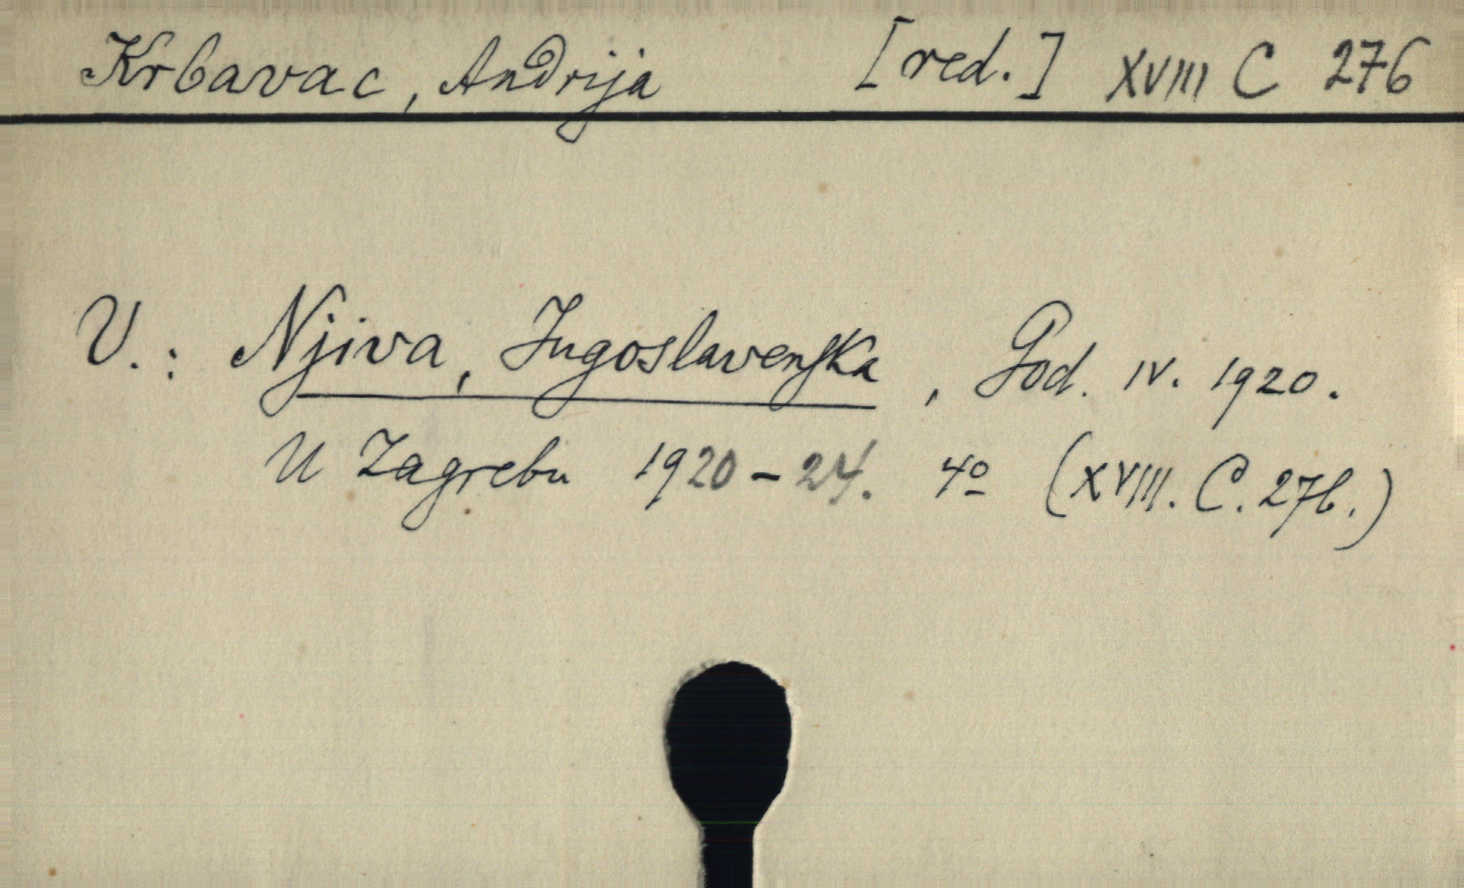 Krbavac, Andrija [red.] XVIII C 276
V.: Njiva, Jugoslavenska, God. IV. 1920.
U Zagrebu 1920-24. 4º (XVIII. C. 276.)